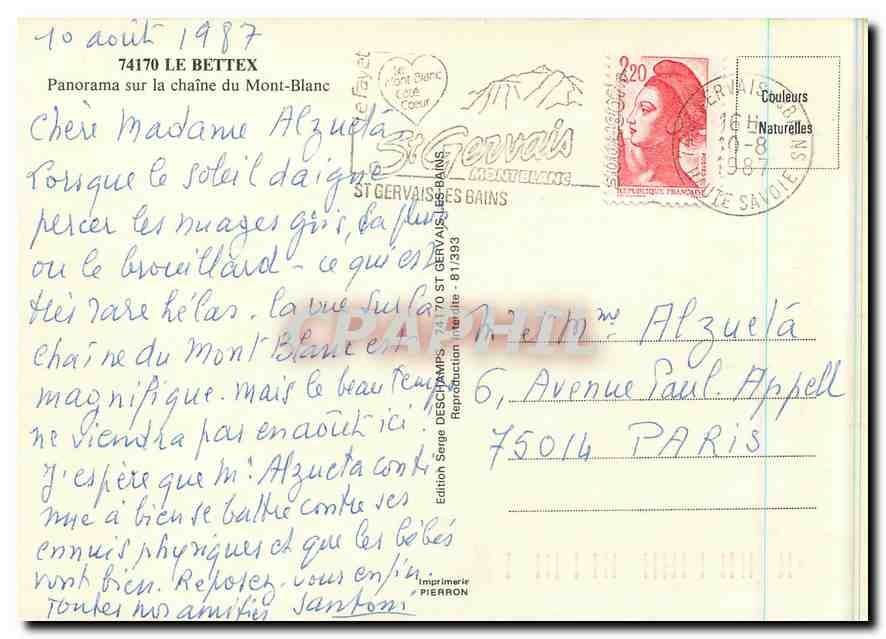 10 août 1987
74170 LE BETTEX
Panorama sur la chaîne du Mont-Blanc
Chère Madame Alzueta,
Lorsque le soleil daigne
percer les nuages gris, la pluie
ou le brouillard - ce qui est
très rare hélas. la vue sur la
chaîne du Mont Blanc est
magnifique. mais le beau temps
ne viendra pas en août ici!
J'espère que Mr Alzueta conti
nue à bien se battre contre ses
ennuis physiques et que les bébés
vont bien. Reposez-vous enfin.
Toutes nos amitiés Santoni
Le Fayet
Le
Mont Blanc
Côté
Coeur
St Gervais
MONT BLANC
ST GERVAIS LES BAINS
2,20
REPUBLIQUE FRANÇAISE
16 H
10-8
1987
HAUTE SAVOIE
Couleurs
Naturelles
Edition Serge DESCHAMPS 74170 ST GERVAIS-LES-BAINS
Reproduction interdite - 81/393
CPAPHIL
Mr et Mme Alzueta
6, Avenue Paul. Appell
75014 PARIS
Imprimerie
PIERRON